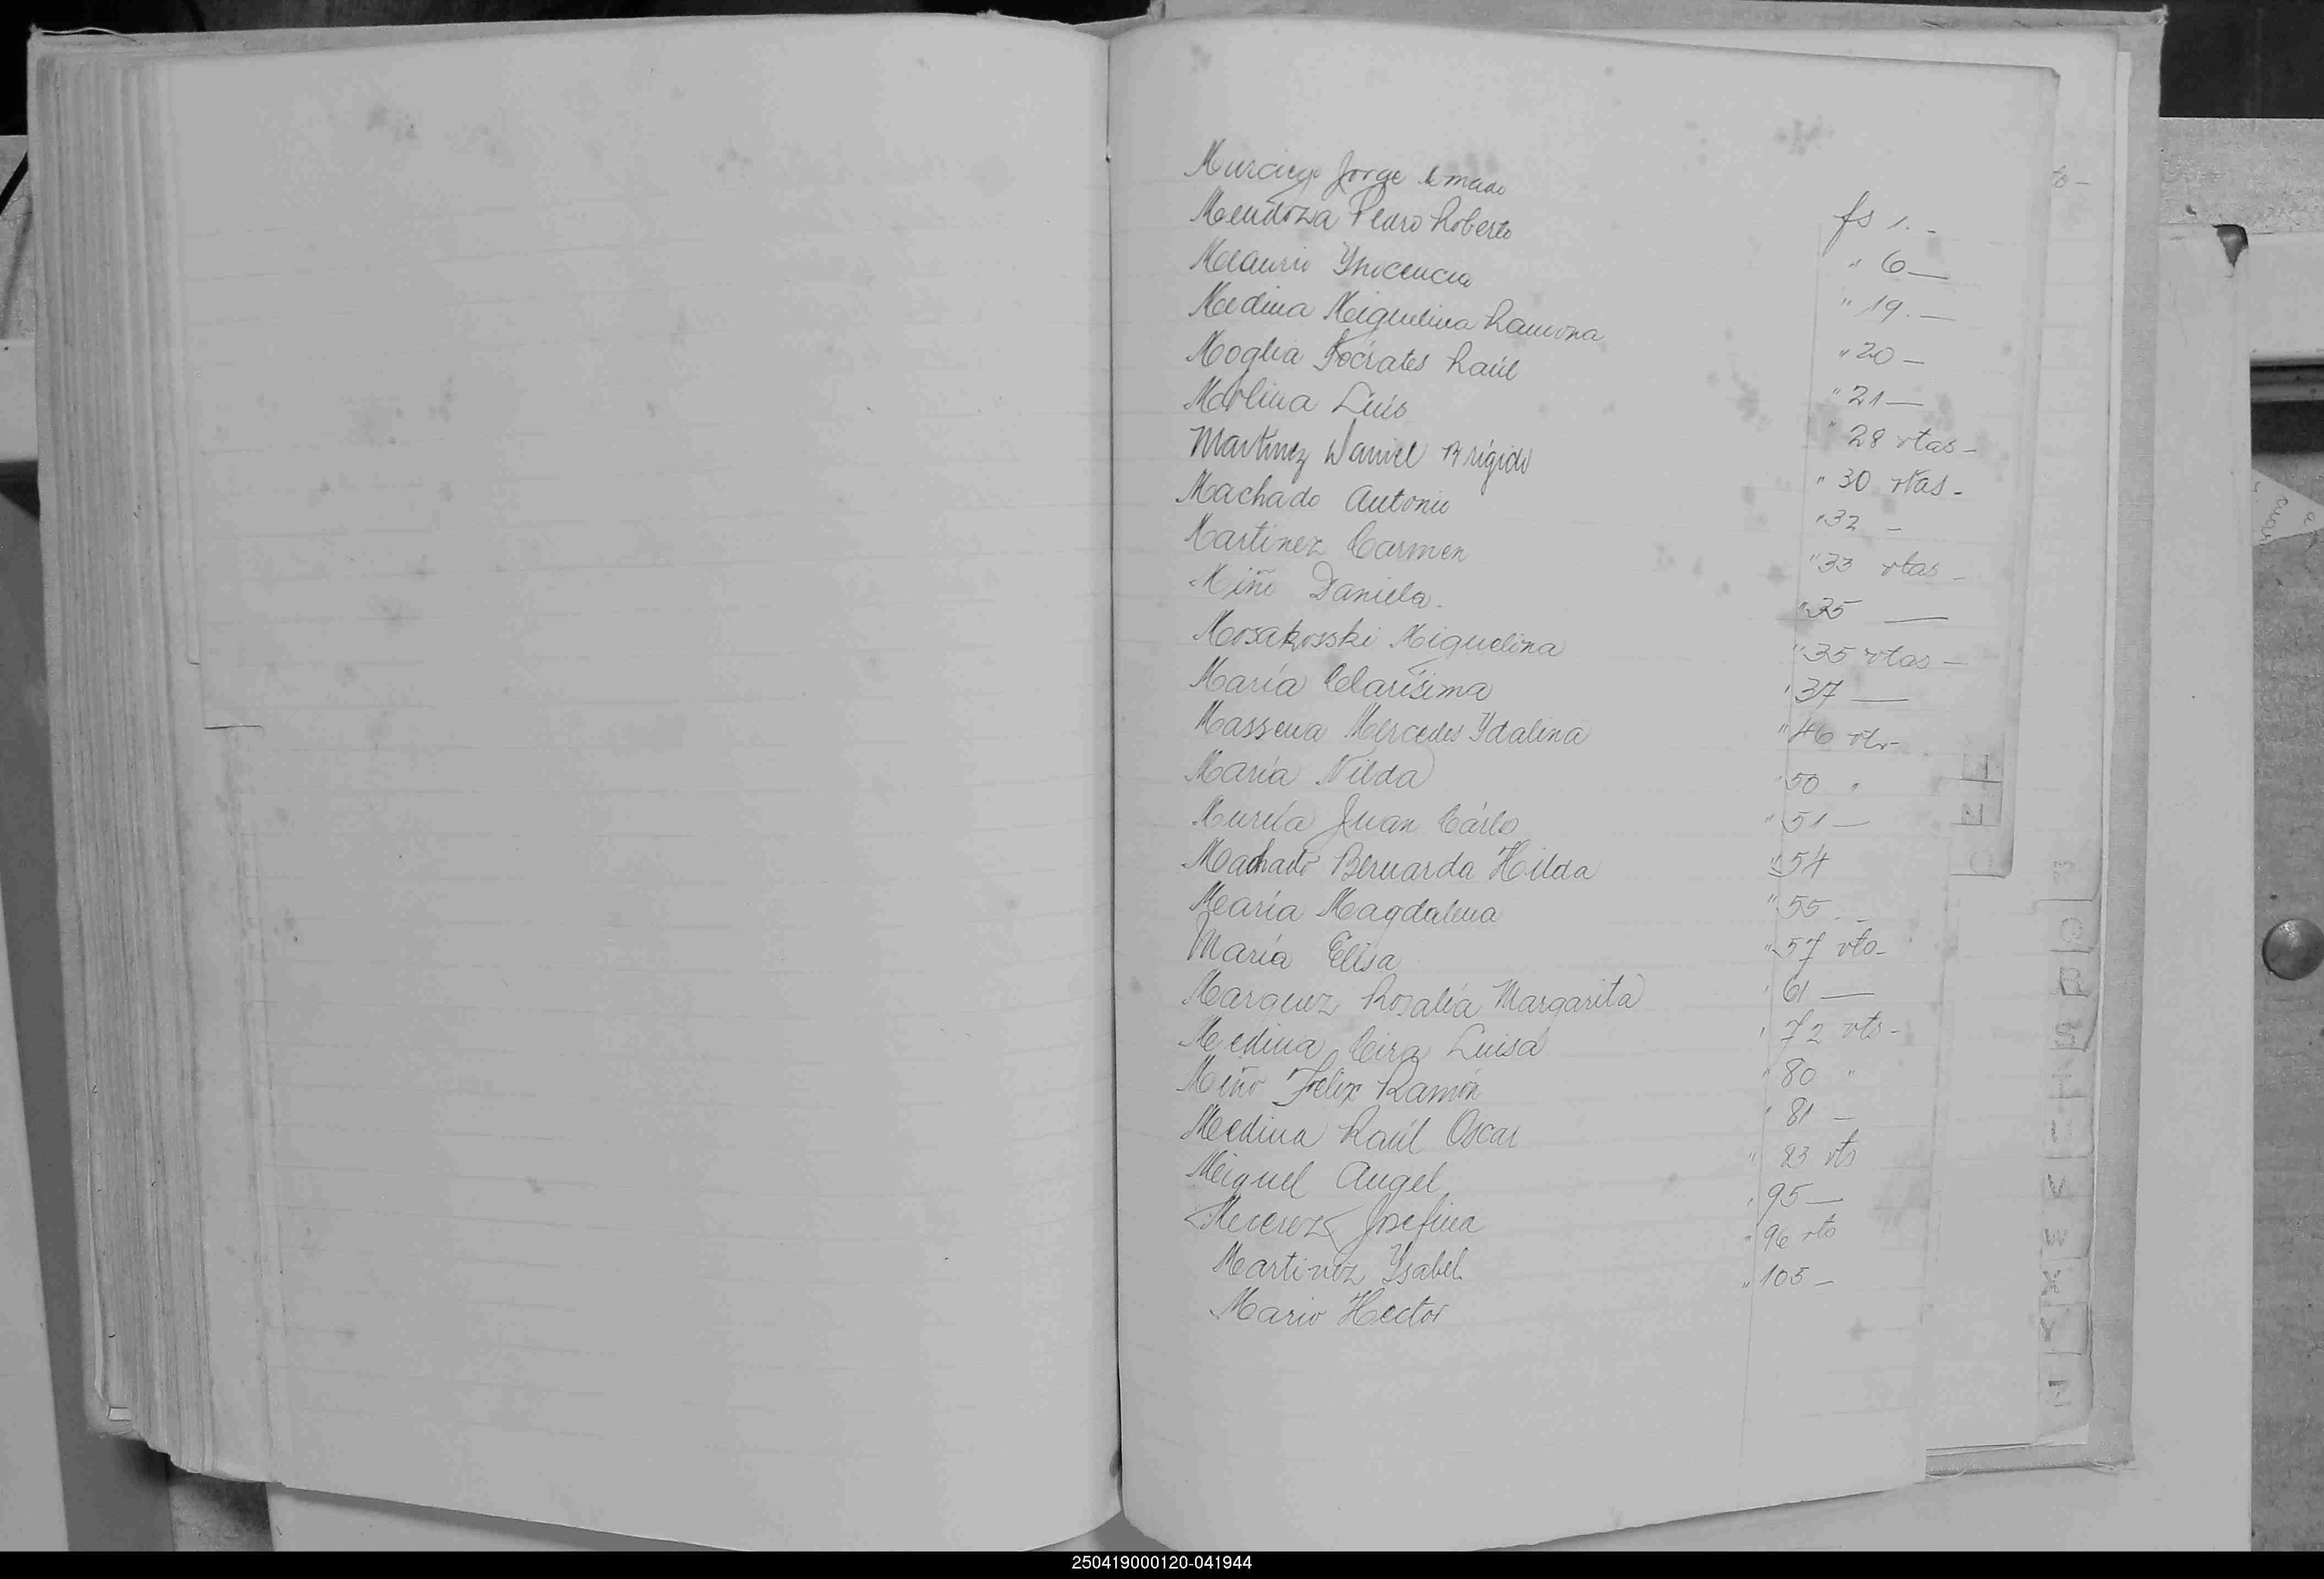 Murciego Jorge Amado fs 1. -
Mendoza Pedro Roberto " 6 —
Maurio Ynocencia " 19. —
Medina Miguelina Ramona " 20 —
Moglia Sócrates Raúl " 21 —
Molina Luis " 28 vtas -
Martinez Daniel Brígido " 30 vtas -
Machado Antonio " 32 -
Martinez Carmen " 33 vtas -
Miño Daniela. " 35 —
Mosakosski Miguelina " 35 vtas —
María Clarisima " 37 —
Massena Mercedes Ydalina " 46 vto
María Nilda " 50 "
Juan Cárlo " 51 —
Machado Bernarda Hilda " 54
María Magdalena " 55. -
María Elisa " 57 vto -
Marquez Rosalía Margarita " 61 —
Medina Cira Luisa " 72 vto -
Miño Felix Ramón " 80 "
Medina Raúl Oscar " 81 —
Miguel Angel " 83 vto
Josefina " 95 —
Martinez Ysabel " 96 vto
Mario Hector " 105 —
250419000120-041944